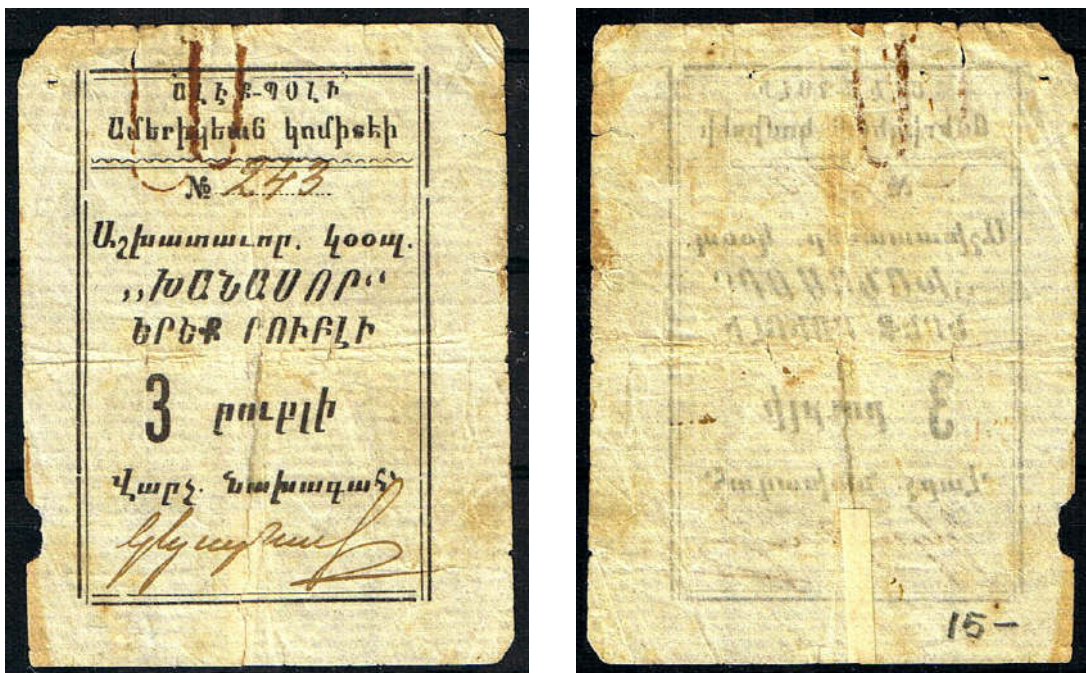 ԱԼԷՔ-ՊՕԼԻ
Ամերիկեան կոմիտէի
№ 243
Աշխատաւոր. կօօպ.
„ԽԱՆԱՍՈՐ“
ԵՐԵՔ ՐՈՒԲԼԻ
3 րուբլի
Վարչ. Նախագահ
15-